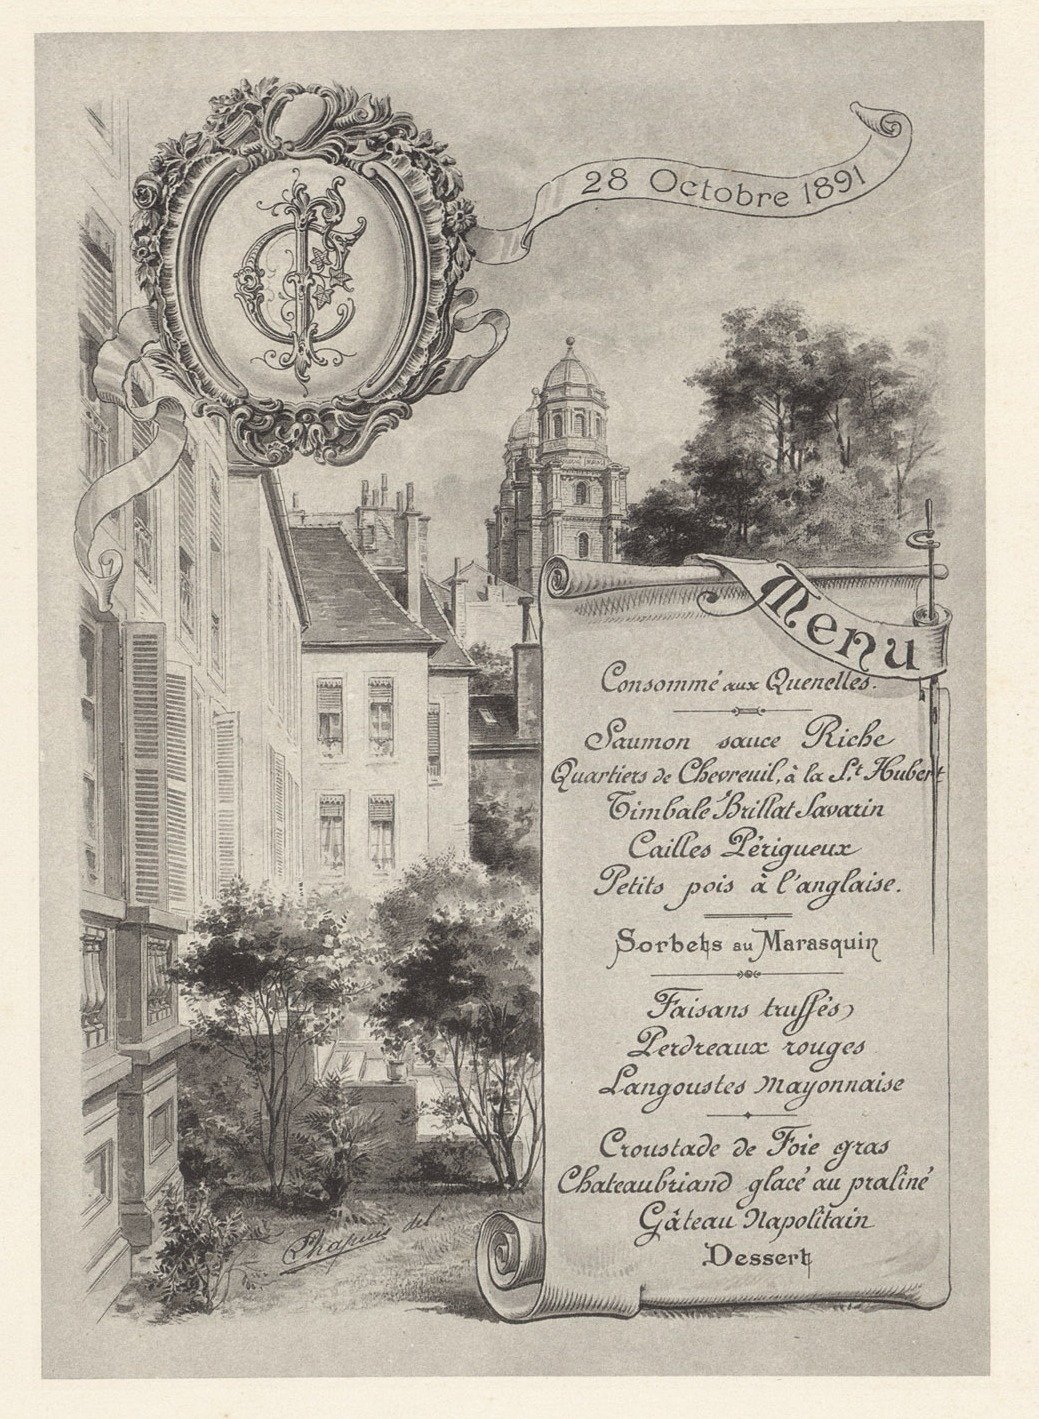 28 Octobre 1891
Menu
Consommé aux Quenelles.
Saumon sauce Riche
Quartiers de Chevreuil, à la St. Hubert
Timbale Brillat Savarin
Cailles Périgueux
Petits pois à l'anglaise.
Sorbets au Marasquin
Faisans truffés
Perdreaux rouges
Langoustes Mayonnaise
Croustade de Foie gras
Chateaubriand glacé au praliné
Gâteau Napolitain
Dessert
Chapuis del.